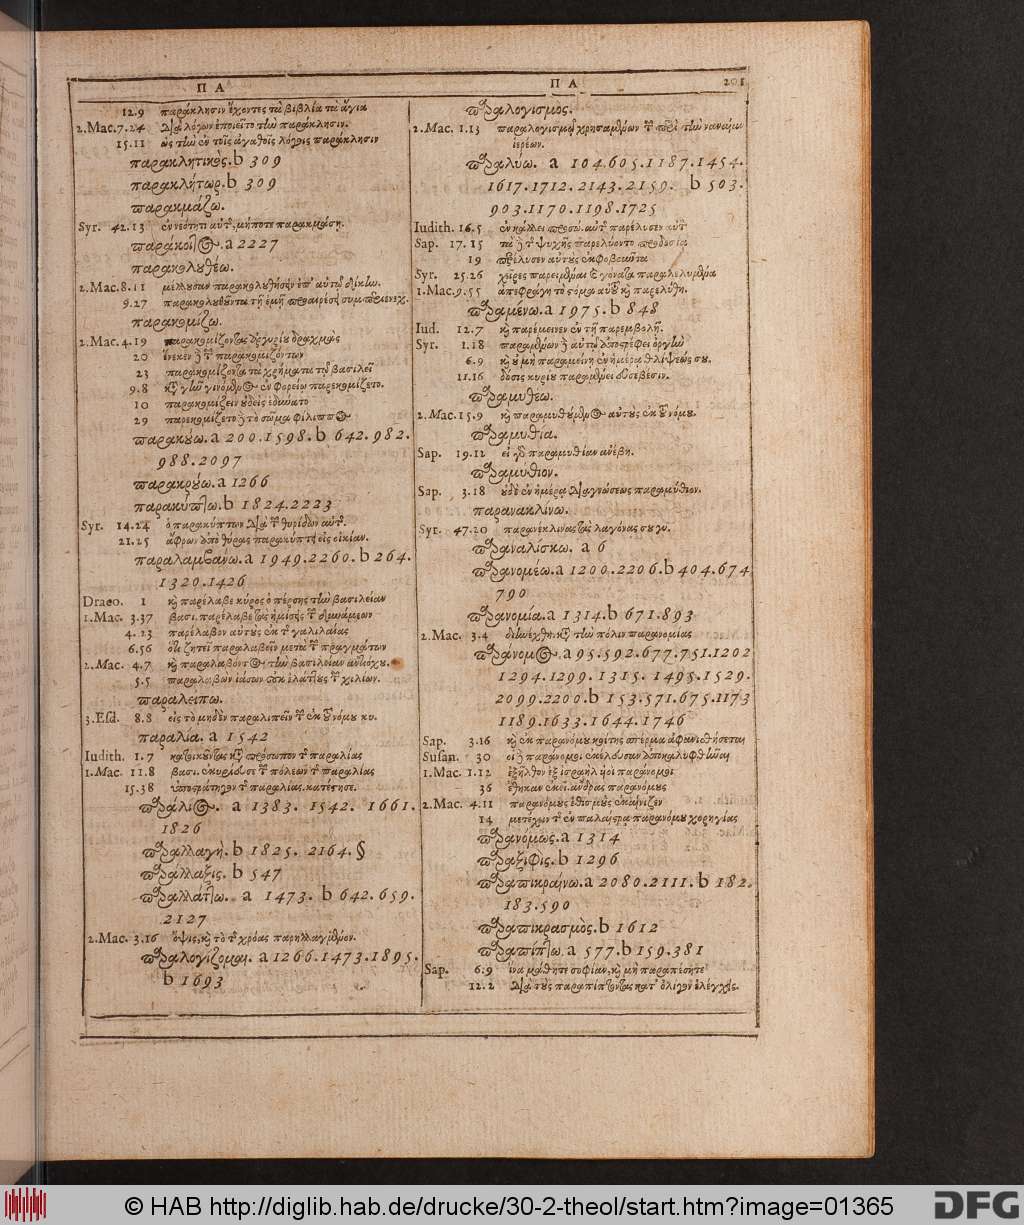 ΠΑ
12.9 παράκλησιν ἔχοντες τὰ βιβλία τὰ ἅγια
2.Mac.7.24 διὰ λόγων ἐποιεῖτο τὴν παράκλησιν.
15.11 ὡς τὴν ἐν τοῖς ἀγαθοῖς λόγοις παράκλησιν
παρακλητικός.b 309
παρακλήτωρ.b 309
παρακμάζω.
Syr. 42.13 ἐν νεότητι αὐτῆς μήποτε παρακμάσῃ.
παράκοιτος.a 2227
παρακολουθέω.
2.Mac.8.11 μέλλουσαν παρακολουθήσειν ἐπ' αὐτῷ δίκην.
9.27 παρακολουθοῦντα τῇ ἐμῇ προαιρέσει συμπεριενεχ.
παρακομίζω.
2.Mac.4.19 παρακομίζοντας ἀργυρίου δραχμὰς
20 ἕνεκεν δὲ τῶν παρακομιζόντων
23 παρακομίζοντα τὰ χρήματα τῷ βασιλεῖ
9.8 κατὰ γῆν γενόμενος ἐν φορείῳ παρεκομίζετο.
10 παρακομίζειν οὐδεὶς ἐδύνατο
29 παρεκομίζετο δὲ τὸ σῶμα φίλιππος
παρακούω.a 200.1598.b 642.982.
988.2097
παρακρούω.a 1266
παρακύπτω.b 1824.2223
Syr. 14.24 ὁ παρακύπτων διὰ τῶν θυρίδων αὐτῆς.
21.25 ἄφρων ἀπὸ θύρας παρακύπτει εἰς οἰκίαν.
παραλαμβάνω.a 1949.2260.b 264.
1320.1426
Draco. 1 καὶ παρέλαβε κύρος ὁ πέρσης τὴν βασιλείαν
1.Mac. 3.37 βασι. παρέλαβε τὰς ἡμίσεις τῶν δυνάμεων
4.23 παρέλαβον αὐτοὺς ἐκ τῆς γαλιλαίας
6.56 ὅτι ζητεῖ παραλαβεῖν μετὰ τῶν πραγμάτων
2.Mac. 4.7 καὶ παραλαβόντος τὴν βασιλείαν ἀντιόχου.
5.5 παραλαβων ἰάσων οὐκ ἐλάττους τῶν χιλίων.
παραλείπω.
3.Esd. 8.8 εἰς τὸ μηδὲν παραλιπεῖν τῶν ἐκ τοῦ νόμου κυ.
παραλία. a 1542
Iudith. 1.7 κατοικοῦντας κατὰ πρόσωπον τῆς παραλίας
1.Mac. 11.8 βασι. ἐκυρίευσε τῶν πόλεων τῆς παραλίας
15.38 ὑποστράτηγον τῆς παραλίας κατέστησε.
παράλιος. a 1383. 1542. 1661.
1826
παραλλαγή.b 1825. 2164.§
παράλλαξις.b 547
παραλλάττω. a 1473. b 642.659.
2127
2.Mac. 3.16 ὄψις, καὶ τὸ τῆς χρόας παρηλλαγμένον.
παραλογίζομαι. a 1266.1473.1895.
b 1693
ΠΑ 201
παραλογισμός.
2.Mac. 1.13 παραλογισμῷ χρησαμένων τῶν περὶ τὴν ναναίαν
ἱερέων.
παραλύω. a 104.605.1187.1454.
1617.1712.2143.2159. b 503.
903.1170.1198.1725
Iudith. 16.5 ἐν κάλλει προσώ. αὐτῆς παρέλυσεν αὐτὸν
Sap. 17.15 τὰ δὲ τῆς ψυχῆς παρελύοντο προδοσίᾳ
19 παρέλυσεν αὐτοὺς ἐκφοβοῦντα
Syr. 25.26 χεῖρες παρειμέναι καὶ γόνατα παραλελυμένα
1.Mac. 9.55 ἀπεφράγη τὸ στόμα αὐτοῦ καὶ παρελύθη.
παραμένω.a 1975.b 848
Iud. 12.7 καὶ παρέμεινεν ἐν τῇ παρεμβολῇ.
Syr. 1.18 παραμένων δὲ αὐτῷ ἀποστρέφει ὀργὴν
6.9 καὶ οὐ μὴ παραμείνῃ ἐν ἡμέρᾳ θλίψεώς σου.
11.16 δόσις κυρίου παραμένει εὐσεβέσιν.
παραμυθέω.
2.Mac.15.9 καὶ παραμυθούμενος αὐτοὺς ἐκ τοῦ νόμου.
παραμυθία.
Sap. 19.12 εἰς γὰρ παραμυθίαν ἀνέβη.
παραμύθιον.
Sap. 3.18 οὐδὲ ἐν ἡμέρᾳ διαγνώσεως παραμύθιον.
παρανακλίνω.
Syr. 47.20 παρανέκλινας τὰς λαγόνας σου γυ.
παραναλίσκω. a 6
παρανομέω.a 1200.2206.b 404.674
790
παρανομία.a 1314.b 671.893
2.Mac. 3.4 διηνέχθη κατὰ τὴν πόλιν παρανομίας
παράνομος.a 95.592.677.751.1202
1294.1299.1315. 1495.1529.
2099.2200.b 153.571.675.1173
1189.1633.1644.1746
Sap. 3.16 καὶ ἐκ παρανόμου κοίτης σπέρμα ἀφανισθήσεται
Susan. 30 οἱ δὲ παράνομοι ἐκέλευσαν ἀποκαλυφθῆναι
1.Mac. 1.12 ἐξῆλθον ἐξ ἰσραὴλ υἱοὶ παράνομοι
36 ἔθηκαν ἐκεῖ ἄνδρας παρανόμους
2.Mac. 4.11 παρανόμους ἐθισμοὺς ἐκαίνιζεν
14 μετέχειν τῆς ἐν παλαίστρᾳ παρανόμου χορηγίας
παρανόμως.a 1314
παράξιφις.b 1296
παραπικραίνω.a 2080.2111.b 182.
183.590
παραπικρασμός.b 1612
παραπίπτω.a 577.b 159.381
Sap. 6.9 ἵνα μάθητε σοφίαν, καὶ μὴ παραπέσητε
12.2 διὰ τοὺς παραπίπτοντας κατ' ὀλίγον ἐλέγχεις.
© HAB http://diglib.hab.de/drucke/30-2-theol/start.htm?image=01365
DFG